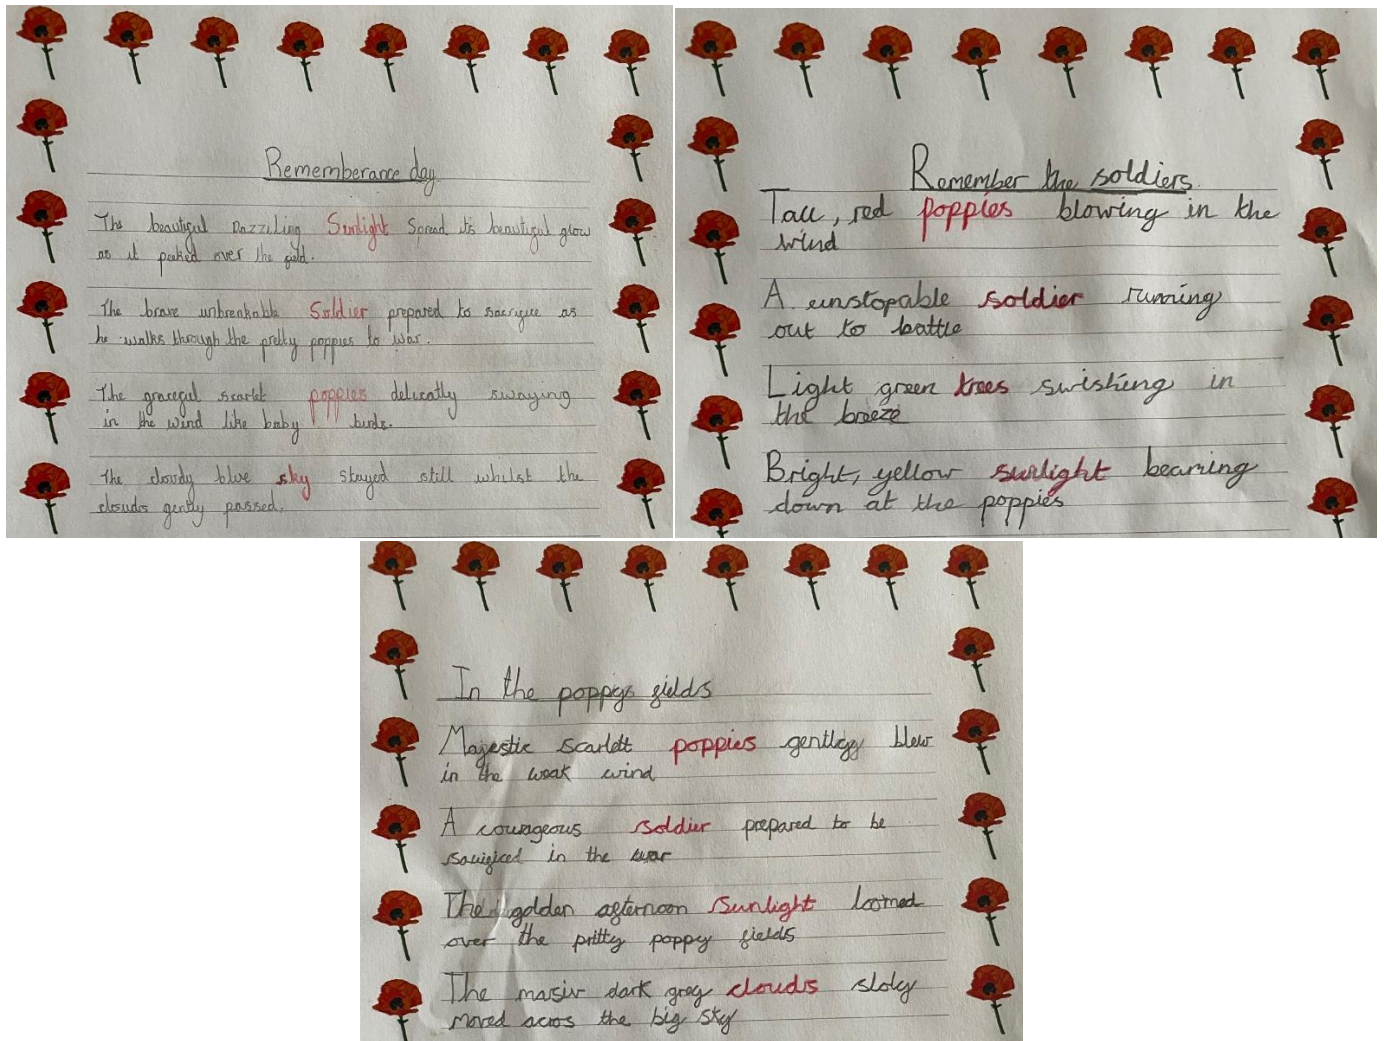 Rememberance day
The beautiful Dazziling Sunlight Spread its beautiful glow
as it peeked over the field.
The brave unbreakable Soldier prepared to sacrifice as
he walks through the pretty poppies to war.
The graceful scarlet poppies delicatly swaying
in the wind like baby birds.
The cloudy blue sky stayed still whilst the
clouds gently passed.
Remember the soldiers
Tall, red poppies blowing in the
wind
A unstopable soldier running
out to battle
Light green trees swishing in
the breeze
Bright, yellow sunlight beaming
down at the poppies
In the poppys fields
Majestic scarlett poppies gentley blew
in the weak wind
A courageous soldier prepared to be
sacrificed in the war
The golden afternoon sunlight loomed
over the pritty poppy fields
The masiv dark grey clouds sloly
moved acros the big sky